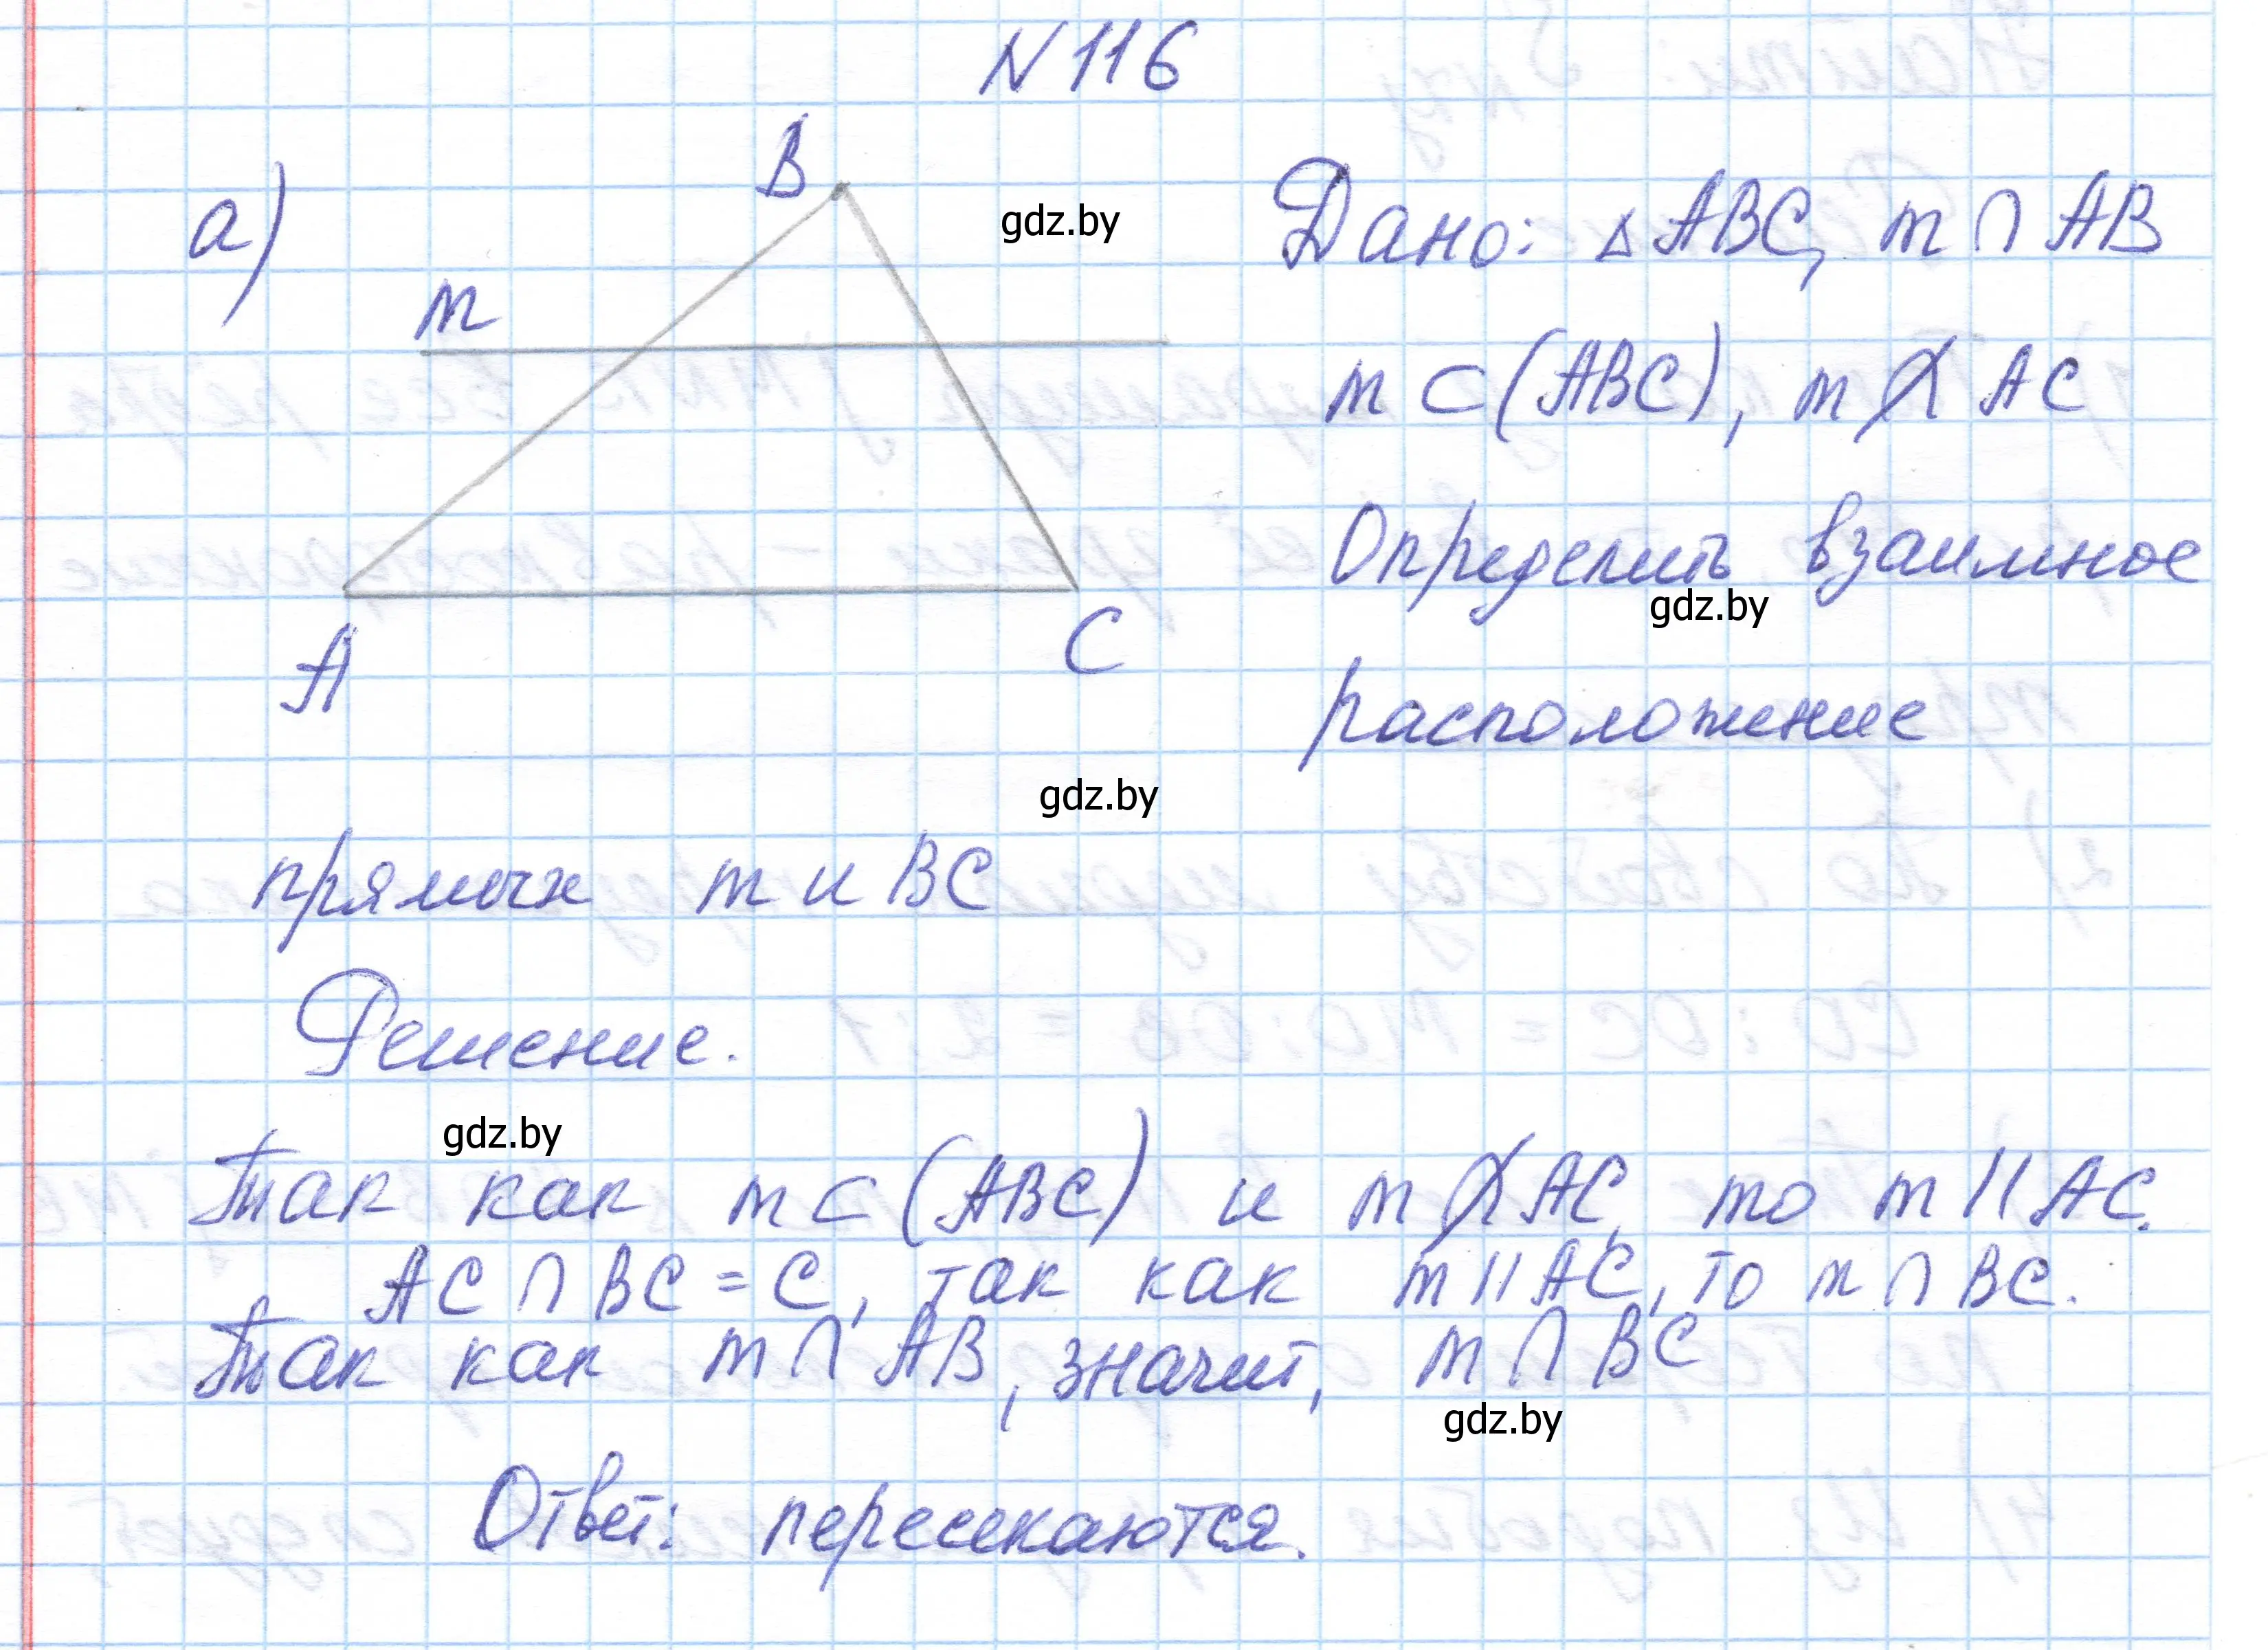 N 116
а)
B
m
A
C
gdz.by
Дано: △ABC, m ∩ AB
m ⊂ (ABC), m ∩̸ AC
Определить взаимное
gdz.by
расположение
gdz.by
прямых m и BC
Решение.
gdz.by
Так как m ⊂ (ABC) и m ∩̸ AC, то m || AC.
AC ∩ BC = C, так как m || AC, то m ∩ BC.
Так как m ∩ AB, значит, m ∩ BC
gdz.by
Ответ: пересекаются.